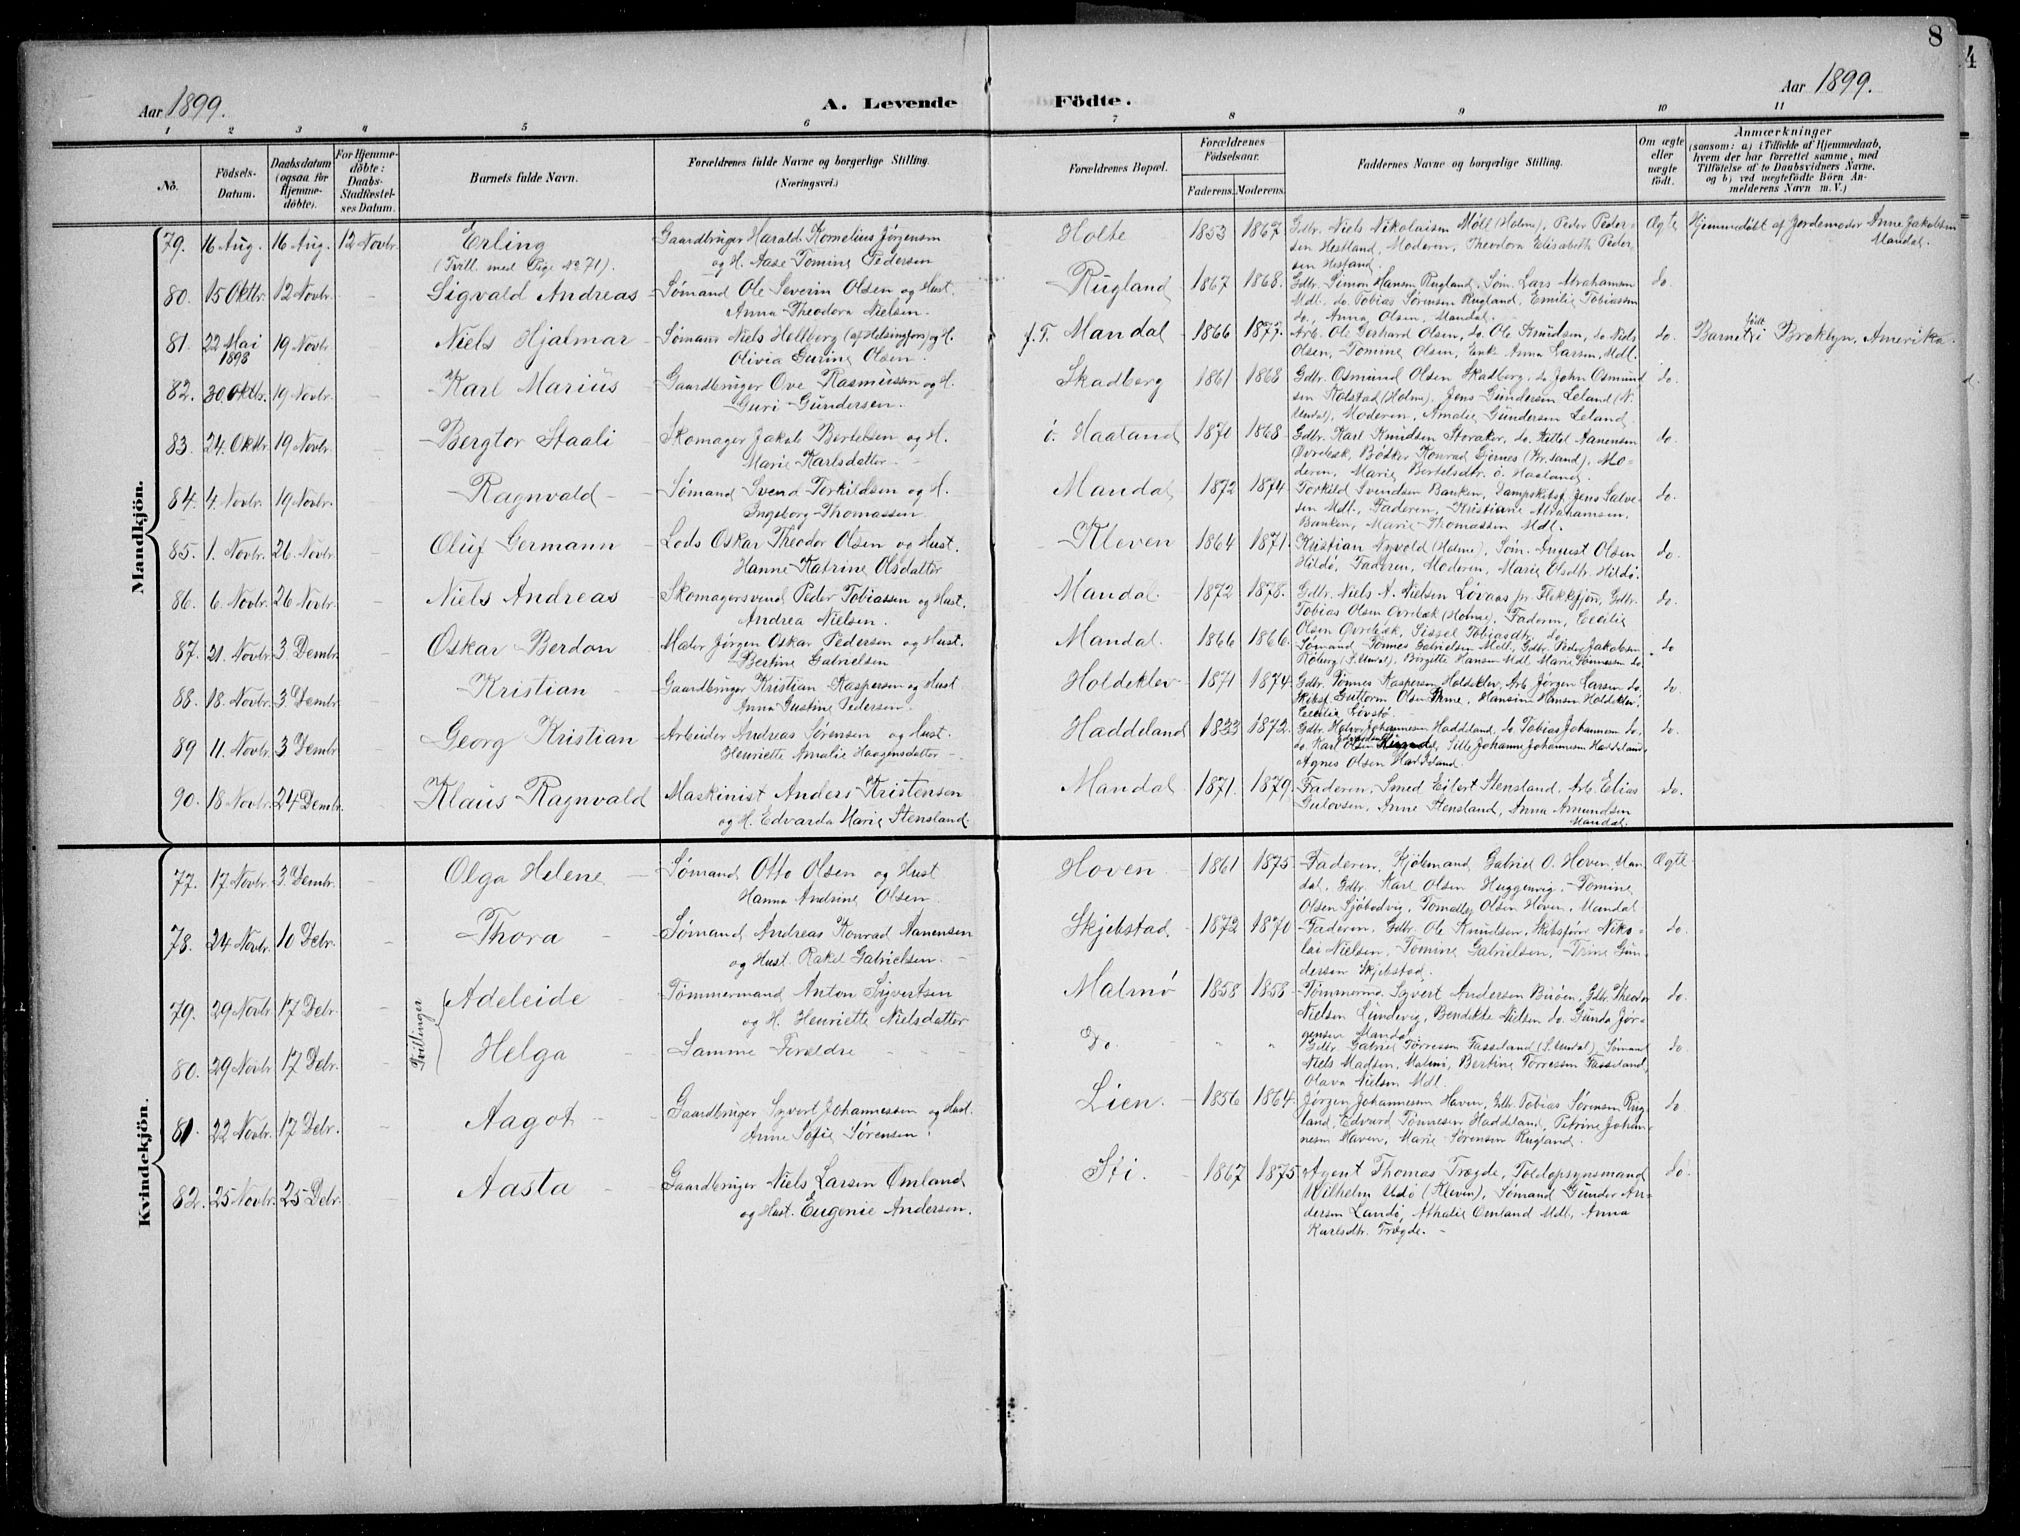 8
4
Aar 1899.
A. Levende Födte.
Aar 1899.
1 2 3 4 5 6 7 8 9 10 11
Nô. Födsels-Datum. Daabsdatum (ogsaa for Hjemmedöbte). For Hjemmedöbte: Daabs-Stadfæstelses Datum. Barnets fulde Navn. Forældrenes fulde Navne og borgerlige Stilling. (Næringsvei.) Forældrenes Bopæl. Forældrenes Födselsaar. Faderens. Moderens. Faddernes Navne og borgerlige Stilling. Om ægte eller uægte födt. Anmærkninger (saasom: a) i Tilfælde af Hjemmedaab, hvem der har forrettet samme, med Tilföielse af to Daabsvidners Navne. og b) ved uægtefödte Börn Anmelderens Navn m. V.)
Mandkjön.
79. 16 Aug. 16 Aug. 12 Novbr. Erling Gaardbruger Harald Kornelius Jørgensen Holte 1853 1867 Gdbr. Niels Nikolaisen Möll (Holm), Peder Peder- Ægte Hjemmedöbt af Jordemoder Anne Jakobsen
(Tvill. med Pige No 71). og H. Aase Tomine Pedersen sen Hestland, Moderen, Theodora Elisabeth Peder- Mandal.
sen Hestland.
80. 15 Oktbr. 12 Novbr. - Sigvald Andreas Sømand Ole Severin Olsen og Hust. Rugland 1867 1868. Gdbr. Simon Hansen Rugland, Søm. Lars Abrahamsen do.
Anna Theodora Nielsen Mdl. do. Tobias Sörensen Rugland, Emilie Tobiassen
do, Anna Olsen, Mandal.
81. 22 Mai 1898 19 Novbr. - Niels Hjalmar Sømand Niels Hollberg (af Helsingfors) og H. f. T. Mandal 1866 1877. Arb. Ole Gerhard Olsen, do. Ole Amundsen, do Niels do. Barnet födt i Broklyn, Amerika.
Olivia Gurine Olsen. Olsen, Tomine Olsen, Enke Anna Larsen, Mdl.
82. 30. Oktbr. 19 Novbr. - Karl Marius Gaardbruger Ove Rasmussen og H. Skadberg 1861 1868 Gdbr. Osmund Olsen Skadberg, do John Osmund do.
Guri Gundersen. sen Kolstad (Holm), Jens Gundersen Leland (N.
Undal), Moderen, Amalie Gundersen Leland.
83. 24. Oktbr. 19 Novbr. - Bergtor Staali Skomager Jakob Bertelsen og H. ö. Haaland 1870 1868. Gdbr. Karl Knudsen Storaker, do. Kittel Aanensen do.
Marie Karlsdatter Övrebæk, Bösker Konrad Gjernes (Kr.sand), Mo-
deren, Marie Bertelsdtr. ö. Haaland.
84. 4. Novbr. 19 Novbr. - Ragnvald Sømand Svend Torkildsen og H. Mandal 1872 1874. Torkild Svendsen Banken, Dampskibsf. Jens Salve- do.
Ingeborg Thomassen sen Mdl., Faderen, Kristiane Abrahamsen,
Banken, Marie Thomassen Mdl.
85. 1. Novbr. 26 Novbr. - Oluf Germann Lods Oskar Theodor Olsen og Hust. Kleven 1864 1871. Kristian Nyvold (Holme), Søm. August Olsen do.
Hanne Katrine Olsdatter Hildö, Faderen, Moderen, Marie Olsdtr. Hildö.
86. 6. Novbr. 26 Novbr. - Niels Andreas Skomagersvend Peder Tobiassen og Hust. Mandal. 1872 1878. Gdbr. Niels A. Nielsen Lövaas pr. Flekkefjord, Gdbr. do.
Andrea Nielsen. Tobias Olsen Övrebæk (Holme), Faderen, Cecilie
Olsen Övrebæk, Sissel Tobiasdtr. do.
87. 21. Novbr. 3 Dembr. Oskar Berdon Maler Jørgen Oskar Pedersen og Hust. Mandal. 1866 1866. Sømand Tönnes Gabrielsen Mdl, Gdbr. Peder Jakobsen do
Bertine Gabrielsen Röberg (S. Undal), Borgette Hansen Mdl. Marie Tönnessen do.
88. 18. Novbr. 3 Dembr. Kristian Gaardbruger Kristian Kaspersen og Hust Holdeklev 1871 1874. Gdbr. Tönnes Kaspersen Holdeklev, Arb. Jørgen Larsen do, do.
Anna Gustine Pedersen. Skibsf. Guttorm Olsen, Hansine Hansen Holdeklev,
Cecilie
89 11. Novbr. 3 Dembr. Georg Kristian Arbeider Andreas Sørensen og Hust. Haddeland 1833 1872. Gdbr. Halvor Johannessen Haddeland, do. Tobias Johannessen do, do.
Henriette Amalie Haagensdatter do. Karl Olsen Sille Johanne Johannessen Haddeland
Agnes Olsen Haddeland.
90. 18 Novbr. 24 Dembr. Klaus Ragnvald Maskinist Anders Kristensen Mandal 1871. 1879. Faderen, Smed Eilert Stensland, Arb. Elias do.
og H. Edvarda Marie Stensland. Gulovsen, Anne Stensland, Anna Amundsen
Mandal.
Kvindekjön.
77. 17 Novbr. 3 Dembr. - Olga Helene Sømand Otto Olsen og Hust Hoven. 1861 1875 Faderen, Kjöbmand Gabriel O. Hoven, Man- Ægte
Hanna Andrine Olsen. dal, Gdbr. Karl Olsen Huggenvig, Tomine
Olsen Sjöbodvig, Tomalle Olsen Hoven, Mandal
78. 24 Novbr. 10 Debr. - Thora Sømand Andreas Konrad Aanensen Skjebstad. 1872 1870 Faderen, Gdbr. Ole Knudsen, Skibsförer Niko- do.
og Hust. Rakel Gabrielsen. lai Nielsen, Tomine Gabrielsen, Trine Gun-
dersen Skjebstad.
Tvillinger
79. 29 Novbr. 17 Debr. - Adeleide Tömmermand Anton Syvertsen Malmö 1858 1858 Tömmermd. Syvert Andersen Buöen, Gdbr. Theodor do.
og H. Henriette Nielsdatter Nielsen Lundevig, Bendikte Nielsen do. Gunda Jör-
gensen Mandal.
80. 29 Novbr 17 Debr. - Helga Samme Forældre Do. " " Gdbr. Gabriel Torressen Fasseland (S. Undal), Sømand do.
Niels Madsen, Malmö, Bertine Torressen Fasseland,
Olava Nielsen Mdl.
81 22 Novbr. 17 Debr. - Aagot Gaardbruger Syvert Johannessen og Hust. Lien. 1856 1864. Jørgen Johannessen Haven, Gdbr. Tobias Sørensen Rug- do.
Anne Sofie Sørensen. land, Edvard Tönnesen Haddeland, Petrine Johan-
nesen Haven, Marie Sørensen Rugland.
82. 25 Novbr. 25 Debr. - Aasta Gaardbruger Niels Larsen Omland Sti. 1867 1875 Agent Thomas Trægde, Toldopsynsmand do.
og Hust. Eugenie Andersen. Wilhelm Udö (Kleven), Sømand Gunder An-
dersen Landö, Athalie Omland Mdl, Anna
Karlsdtr. Trægde.